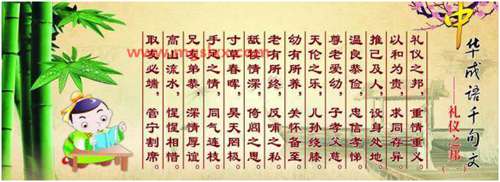 中华成语千句文
——礼仪之邦
礼仪之邦，重情重义。
以和为贵，求同存异。
推己及人，设身处地。
温良恭俭，忠信孝悌。
尊老爱幼，子孝父慈。
天伦之乐，儿孙绕膝。
幼有所养，关怀备至。
老有所终，反哺之私。
舐犊情深，倚闾之思。
寸草春晖，昊天罔极。
手足之情，同气连枝。
兄友弟恭，深情厚谊。
高山流水，惺惺相惜。
取友必端，管宁割席。